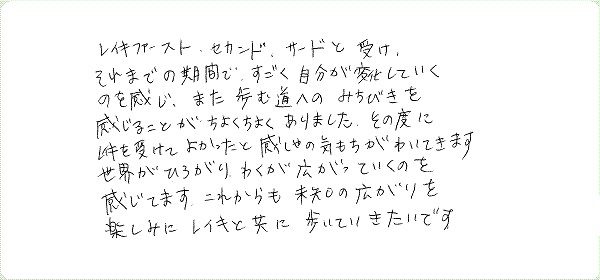 レイキファースト、セカンド、サードと受け、
それまでの期間で、すごく自分が変化していく
のを感じ、また歩む道へのみちびきを
感じることがちょくちょくありました。その度に
レイキを受けてよかったと感しゃの気もちがわいてきます
世界がひろがり、わくが広がっていくのを
感じてます。これからも未知の広がりを
楽しみにレイキと共に歩いていきたいです